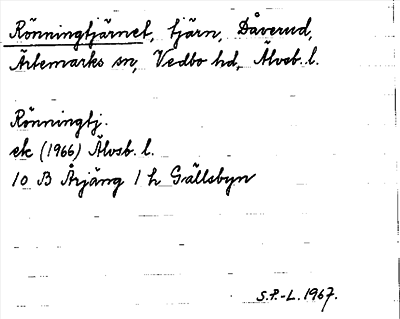 Rönningtjärnet, tjärn, Dåverud,
Ärtemarks sn, Vedbo hd, Älvsb. l.
Rönningtj.
ek (1966) Älvsb. l.
10 B Årjäng 1 h Gällsbyn
S.P.-L. 1967.